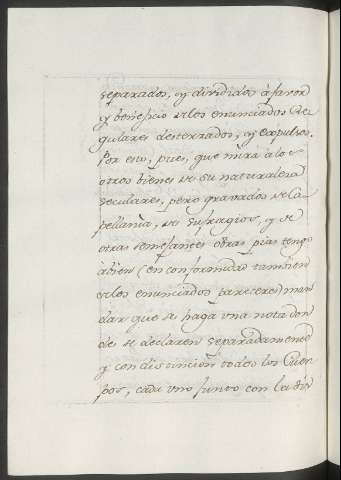 separados, y divididos à favor
y beneficio de los enunciados Re-
gulares desterrados, y expulsos.
Por esto, pues, que mira à lo s
otros bienes de su naturaleza
seculares, pero gravados de Ca-
pellania, de sufragios, y de
otras semejantes obras pias tengo
à bien (en conformidad tambien
de los enunciados pareceres) man
dar que se haga una nota don
de se declaren separadamente
y con distincion todos los Cuer-
pos, cada uno junto con la dis